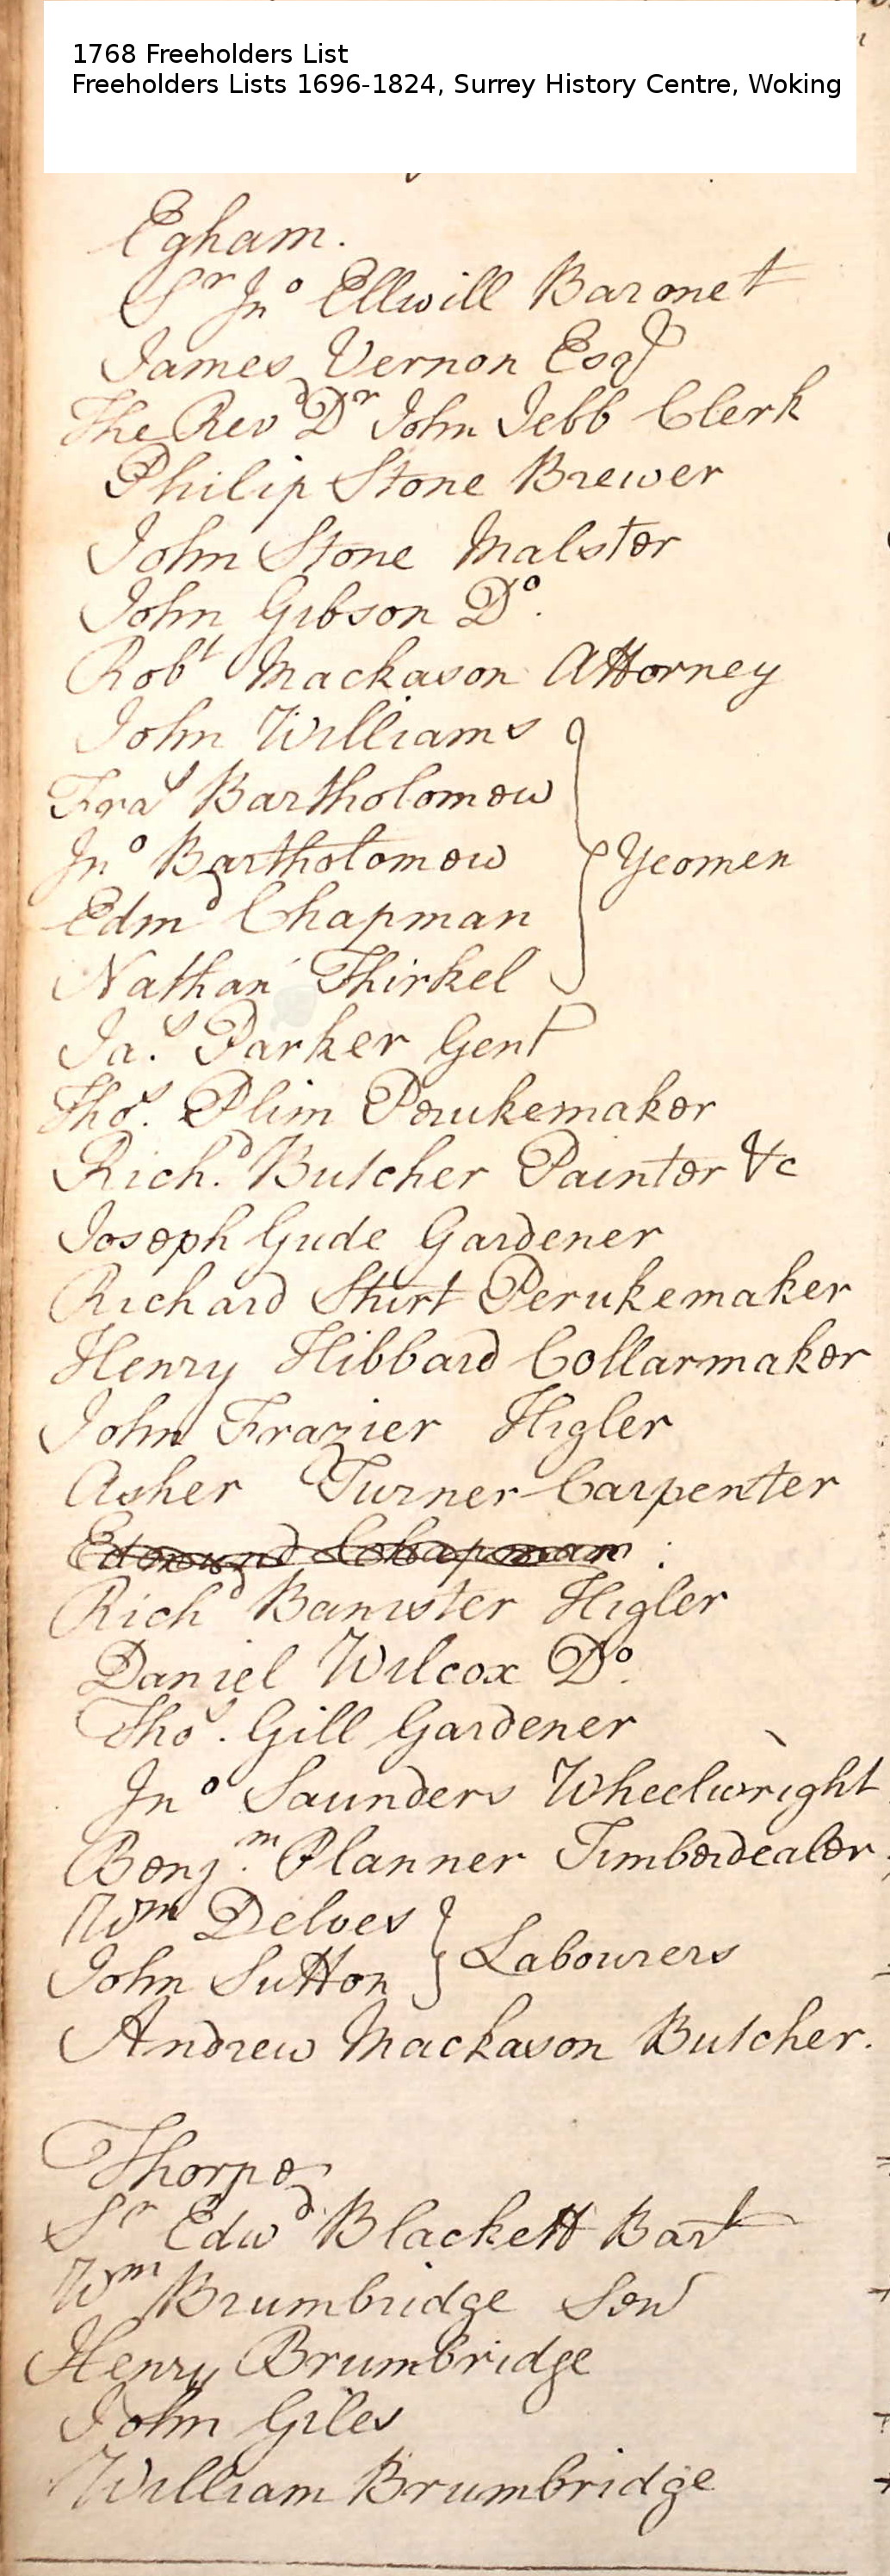 1768 Freeholders List
Freeholders Lists 1696-1824, Surrey History Centre, Woking
Egham.
Sr Jno Ellwill Baronet
James Vernon Esqr
The Revd Dr John Jebb Clerk
Philip Stone Brewer
John Stone Malster
John Gibson Do.
Robt Mackason Attorney
John Williams
Fras Bartholomew
Jno Bartholomew
Yeomen
Edmd Chapman
Nathan Thirkel
Jas. Parker Gent
Thos. Plim Perukemaker
Richd. Butcher Painter &c
Joseph Gude Gardener
Richard Shirt Perukemaker
Henry Hibbard Collarmaker
John Frazier Higler
Asher Turner Carpenter
Edmund Chapman
Richd Banister Higler
Daniel Wilcox Do.
Thos. Gill Gardener
Jno Saunders Wheelwright
Benjm. Planner Timberdealer
Wm Delves
Labourers
John Sutton
Andrew Mackason Butcher.
Thorpe
Sr Edwd Blackett Bart
Wm Brumbridge Senr
Henry Brumbridge
John Giles
William Brumbridge